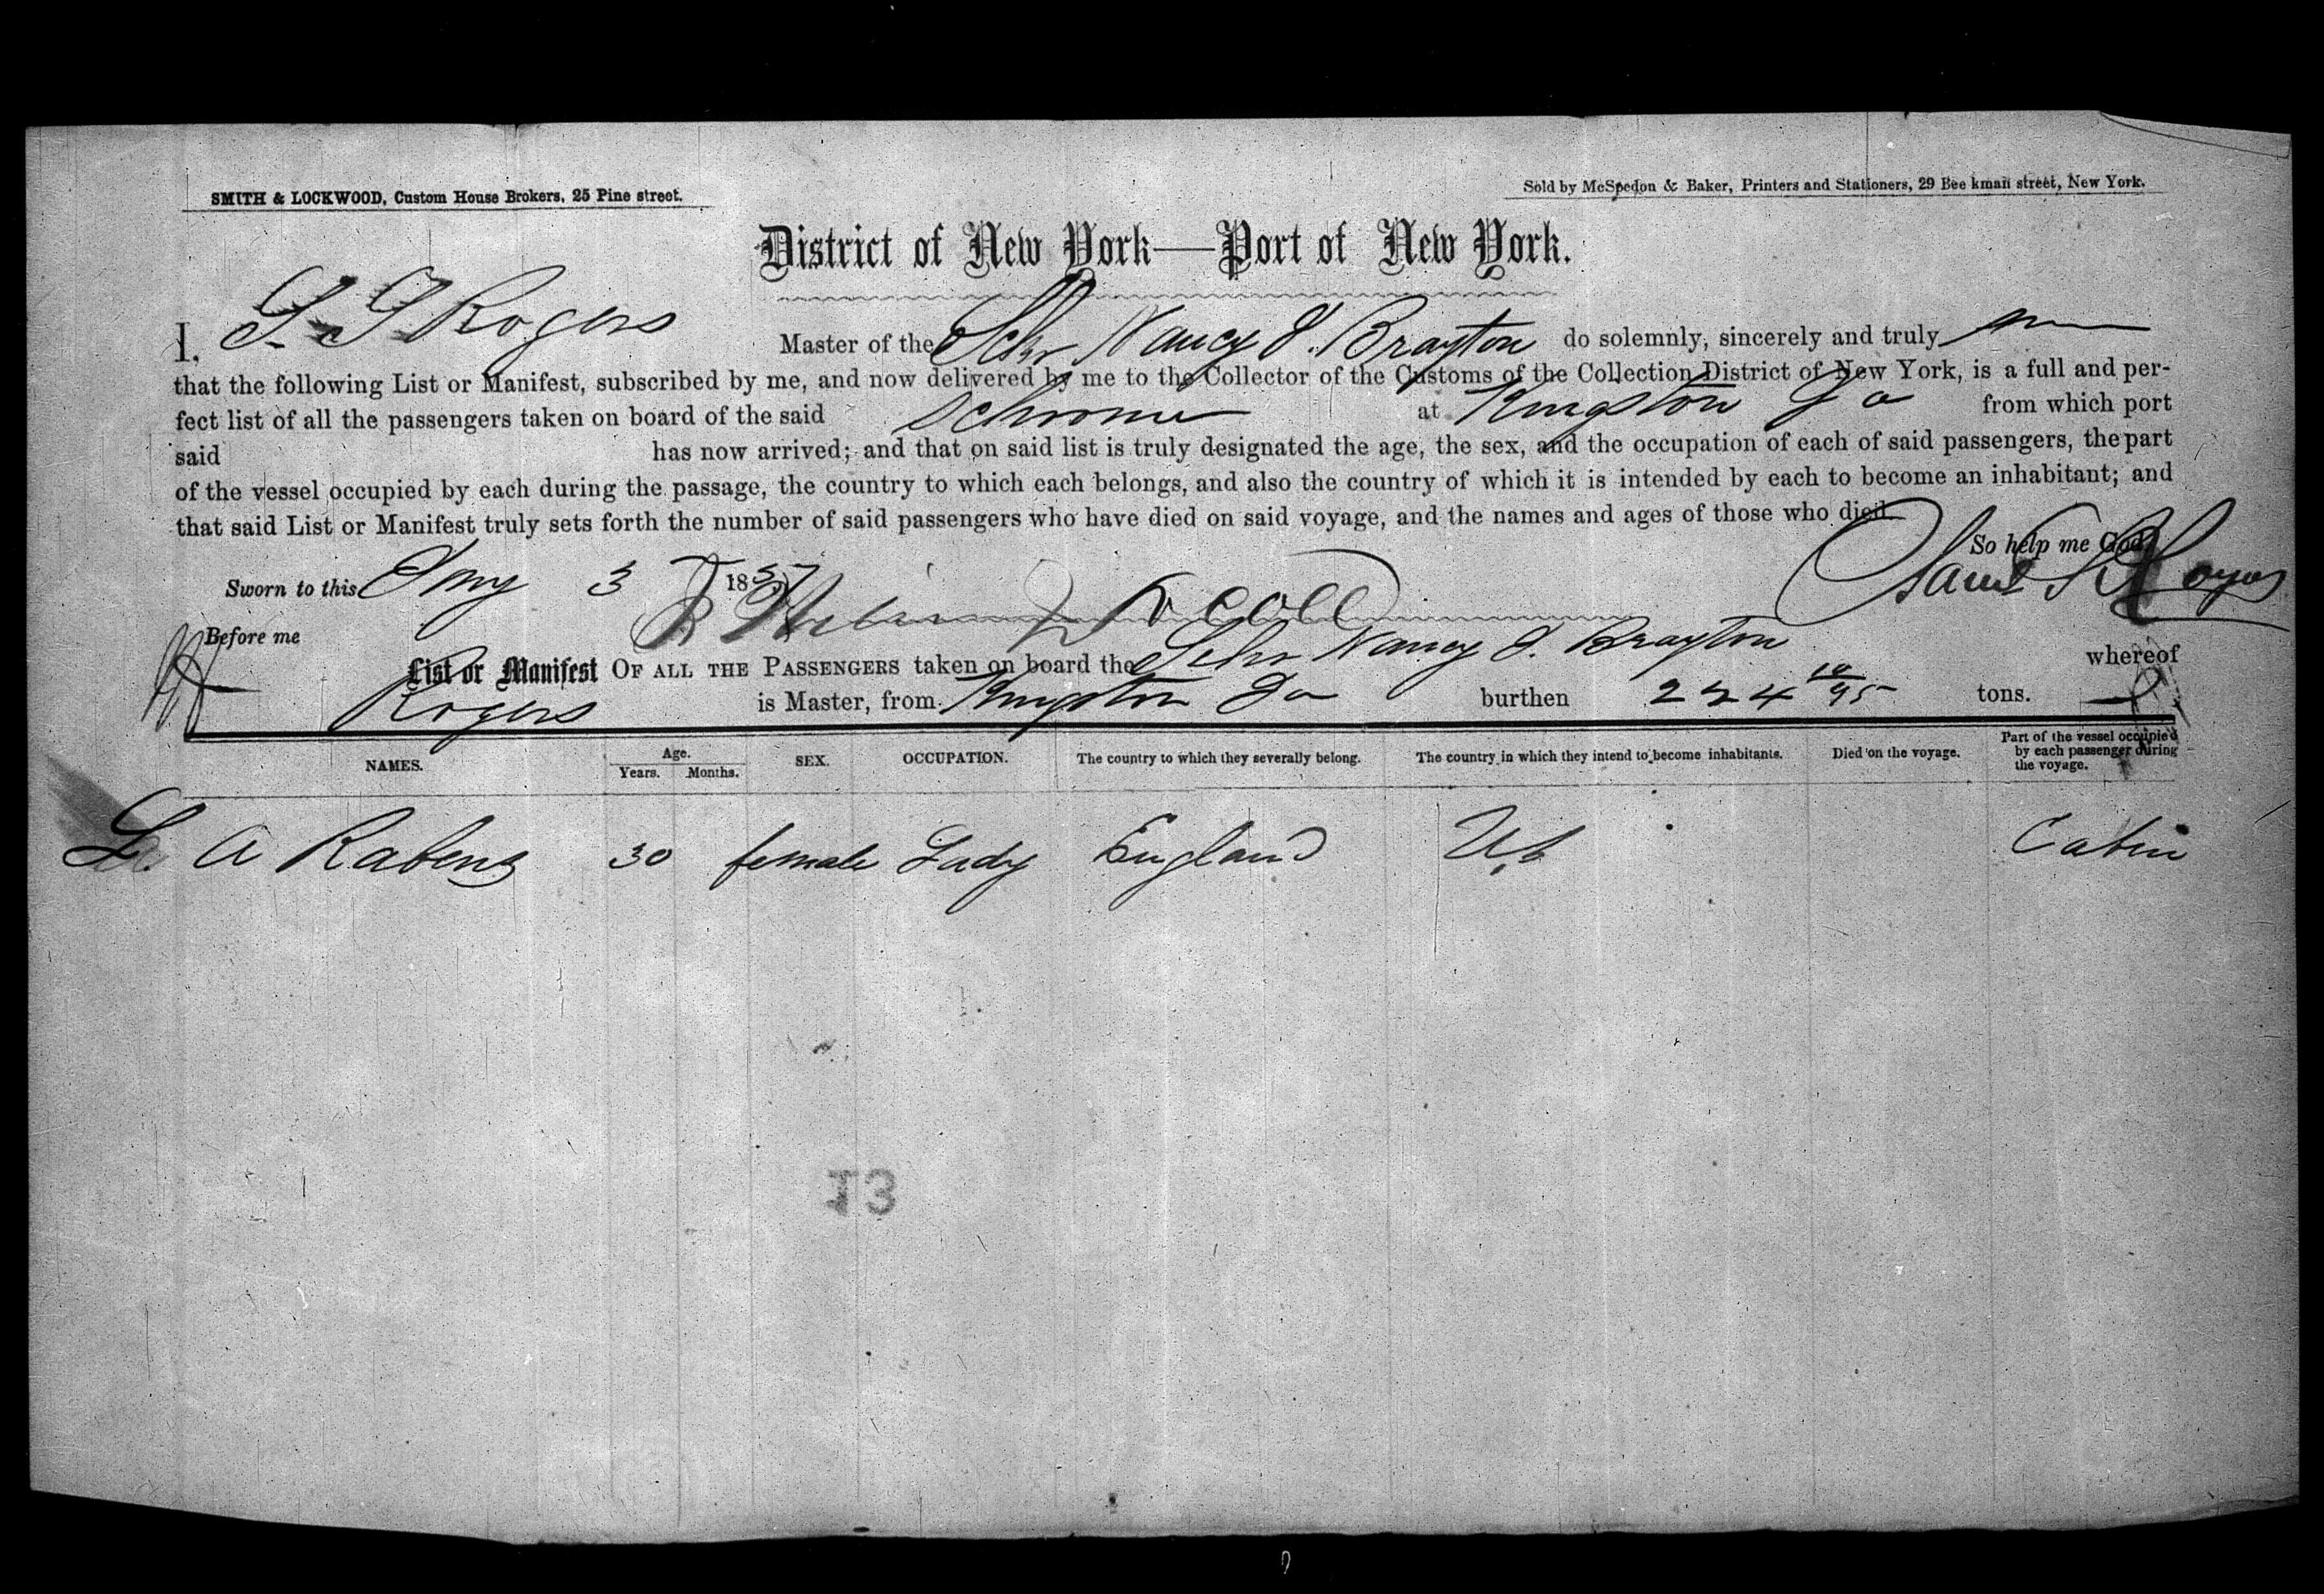 SMITH & LOCKWOOD, Custom House Brokers, 25 Pine street.
Sold by McSpedon & Baker, Printers and Stationers, 29 Beekman street, New York.
District of New York—Port of New York.
I, S. S Rogers Master of the Schr Nancy J. Brayton do solemnly, sincerely and truly
that the following List or Manifest, subscribed by me, and now delivered by me to the Collector of the Customs of the Collection District of New York, is a full and per-
fect list of all the passengers taken on board of the said at Kingston Ja from which port
said has now arrived; and that on said list is truly designated the age, the sex, and the occupation of each of said passengers, the part
of the vessel occupied by each during the passage, the country to which each belongs, and also the country of which it is intended by each to become an inhabitant; and
that said List or Manifest truly sets forth the number of said passengers who have died on said voyage, and the names and ages of those who died.
So help me God.
Sworn to this 3 1857
Saml S Rogers
Before me
List or Manifest OF ALL THE PASSENGERS taken on board the Schr Nancy J. Brayton whereof
Rogers is Master, from Kingston Ja burthen 224 tons.
NAMES. Age. Years. Months. SEX. OCCUPATION. The country to which they severally belong. The country in which they intend to become inhabitants. Died on the voyage. Part of the vessel occupied by each passenger during the voyage.
A Rabens 30 female Lady England US Cabin
13